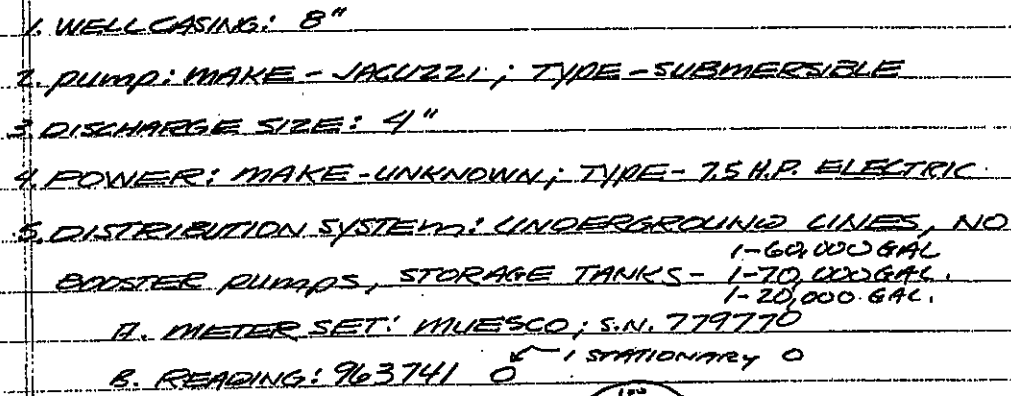 1. WELL CASING: 8"
2. PUMP: MAKE - JACUZZI; TYPE - SUBMERSIBLE
3. DISCHARGE SIZE: 4"
4. POWER: MAKE - UNKNOWN; TYPE - 7.5 H.P. ELECTRIC.
5. DISTRIBUTION SYSTEM: UNDERGROUND LINES, NO
1-60,000 GAL
BOOSTER PUMPS, STORAGE TANKS - 1-70,000 GAL.
1-20,000 GAL.
A. METER SET: MUESCO; S.N. 779770
1 STATIONARY 0
B. READING: 963741 0